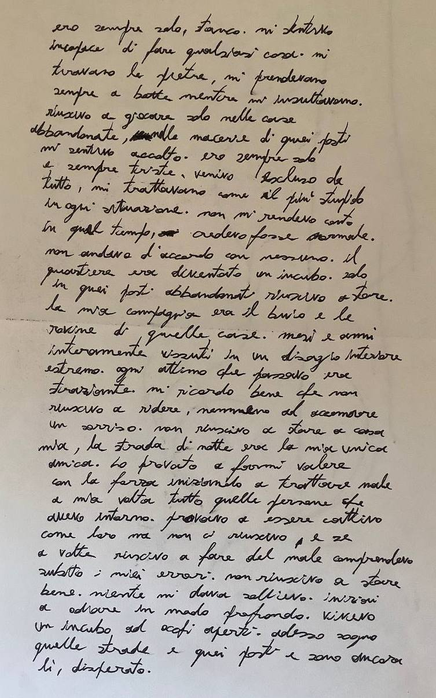 ero sempre solo, stanco. mi sentivo
incapace di fare qualsiasi cosa. mi
tiravano le pietre, mi prendevano
sempre a botte mentre mi insultavano.
riuscivo a giocare solo nelle case
abbandonate, nelle macerie di quei posti
mi sentivo accolto. ero sempre solo
e sempre triste. venivo escluso da
tutto, mi trattavano come il più stupido
in ogni situazione. non mi rendevo conto
in quel tempo, credevo fosse normale.
non andavo d'accordo con nessuno. il
quartiere era diventato un incubo. solo
in quei posti abbandonati riuscivo a stare.
la mia compagnia era il buio e le
rovine di quelle case. mesi e anni
interamente vissuti in un disagio interiore
estremo. ogni attimo che passavo era
straziante. mi ricordo bene che non
riuscivo a ridere, nemmeno ad accennare
un sorriso. non riuscivo a stare a casa
mia, la strada di notte era la mia unica
amica. ho provato a farmi valere
con la forza iniziando a trattare male
a mia volta tutte quelle persone che
avevo intorno. provavo a essere cattivo
come loro ma non ci riuscivo, e se
a volte riuscivo a fare del male comprendevo
subito i miei errori. non riuscivo a stare
bene. niente mi dava sollievo. iniziai
a odiare in modo profondo. vivevo
un incubo ad occhi aperti. adesso sogno
quelle strade e quei posti e sono ancora
lì, disperato.